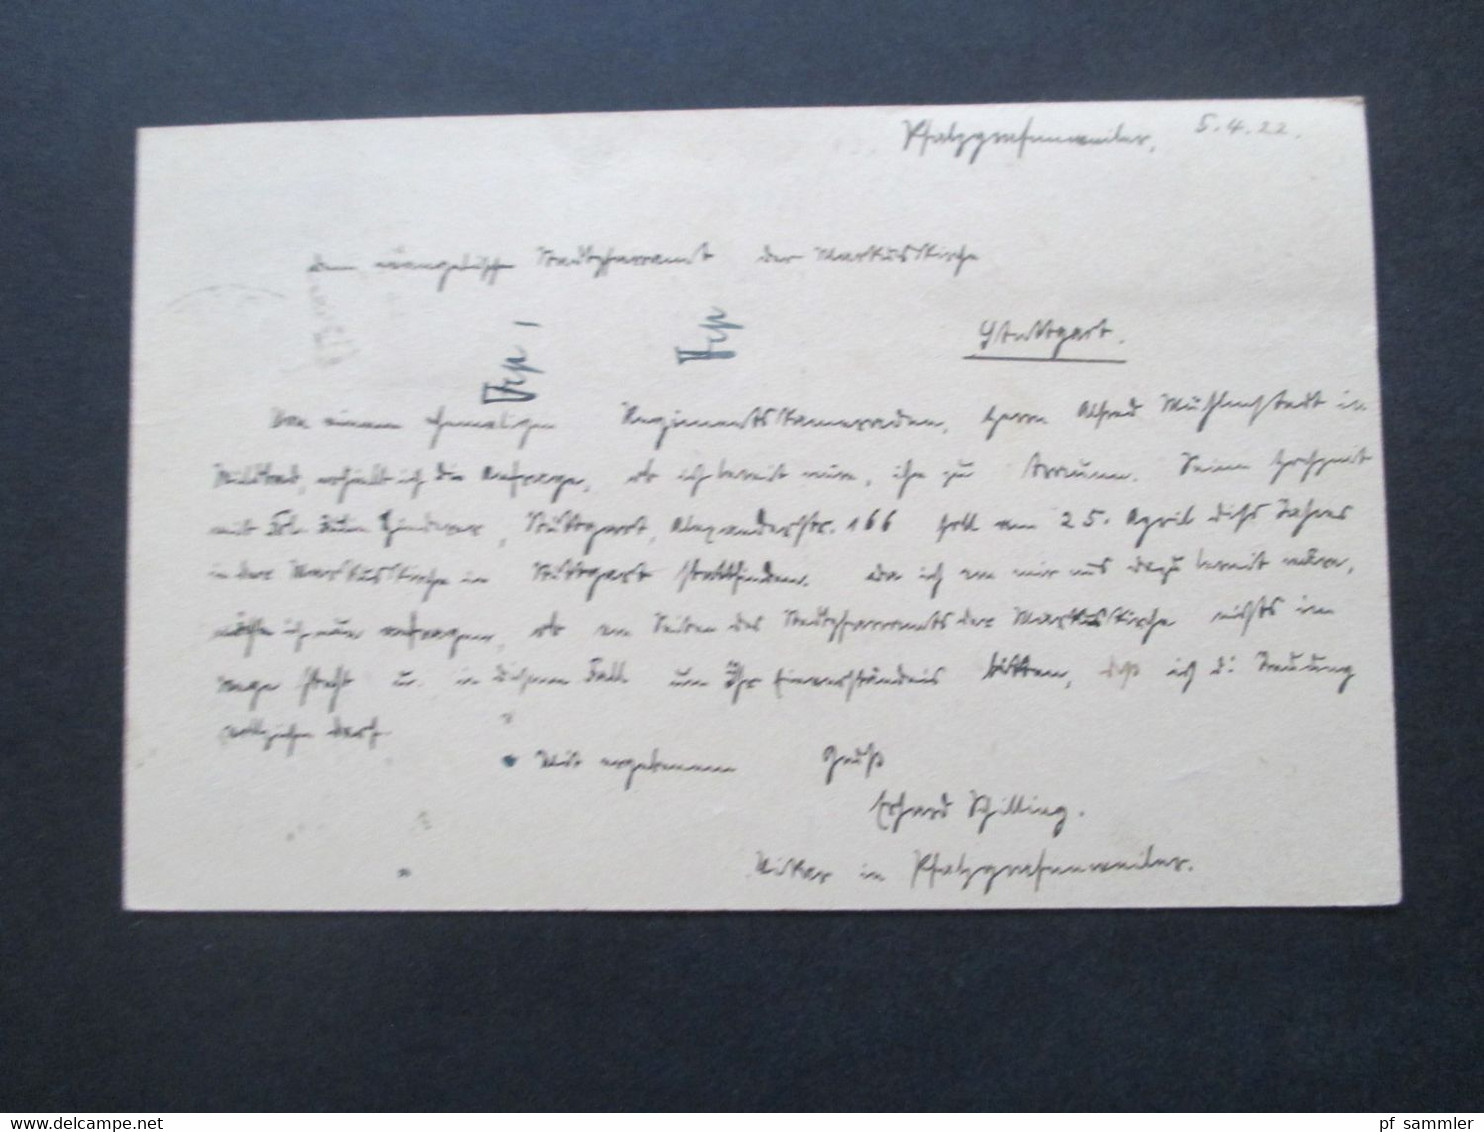 Pfalzgrafenweiler, 5.4.22.
Dem evangelischen Stadtpfarramt der Markuskirche
Stuttgart.
Von einem ehemaligen Regimentskameraden, Herrn Alfred Mühlenstedt in
erhielt ich die Anfrage, ob ich bereit wäre, ihn zu trauen. Seine Hochzeit
mit Frl. Hinderer, Stuttgart, Alexanderstr. 166 soll am 25. April dies. Jahres
in der Markuskirche in Stuttgart stattfinden. Da ich an mir aus dazu bereit wäre,
möchte ich nun anfragen, ob von Seiten des Stadtpfarramts der Markuskirche nichts im
Wege steht u. in diesem Fall um Ihr Einverständnis bitten, daß ich d: Trauung
vollziehen darf.
Mit ergebenem Gruß
Erhard Schilling.
Vikar in Pfalzgrafenweiler.
pf sammler
delcampe.net